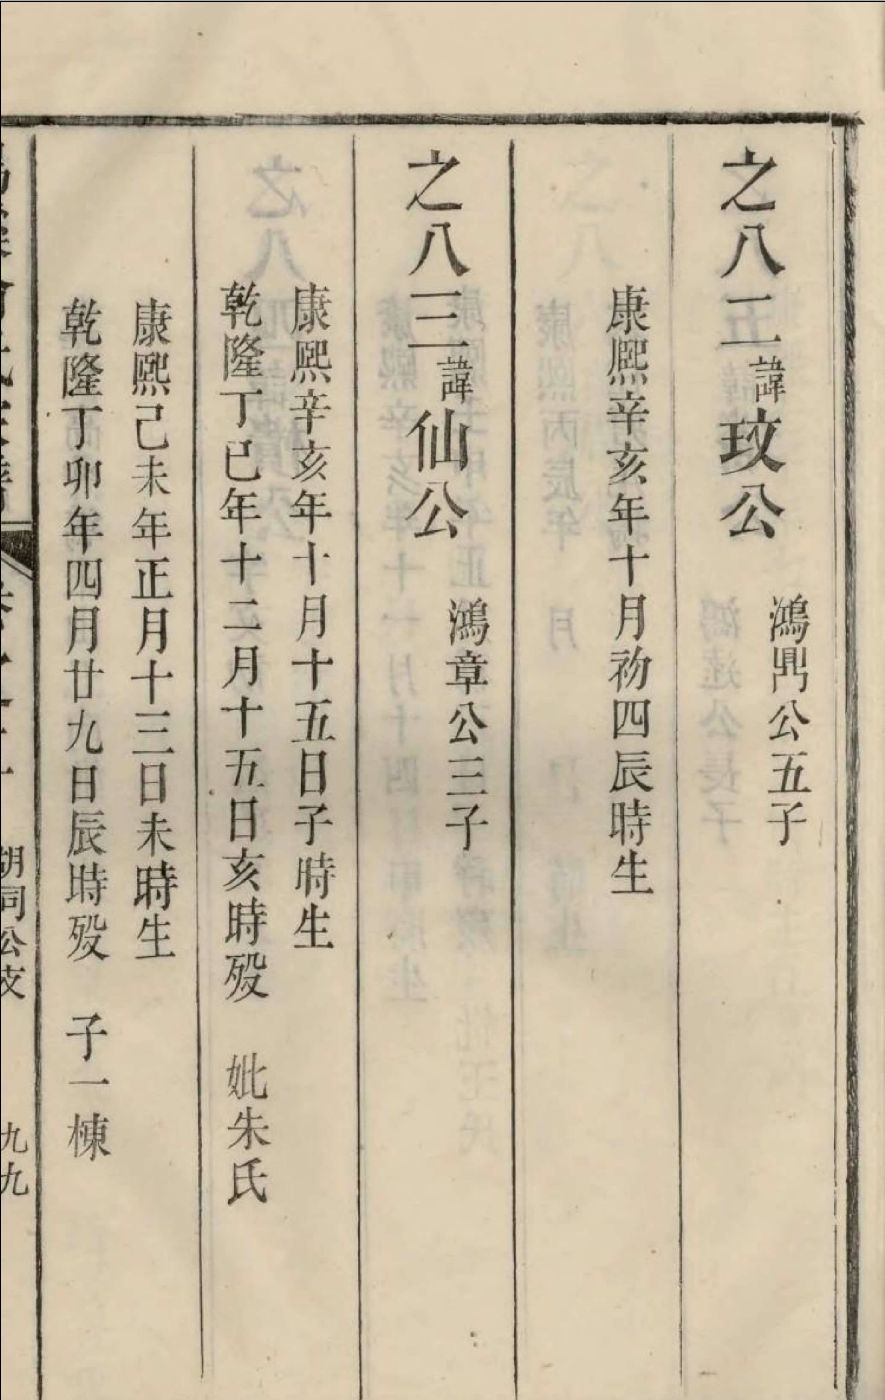 之八二諱玟公
鴻鼎公五子
康熙辛亥年十月初四辰時生
之八三諱仙公
鴻章公三子
康熙辛亥年十月十五日子時生
乾隆丁巳年十二月十五日亥時殁　妣朱氏
康熙己未年正月十三日未時生
乾隆丁卯年四月廿九日辰時殁　子一棟
胡同公支
九九